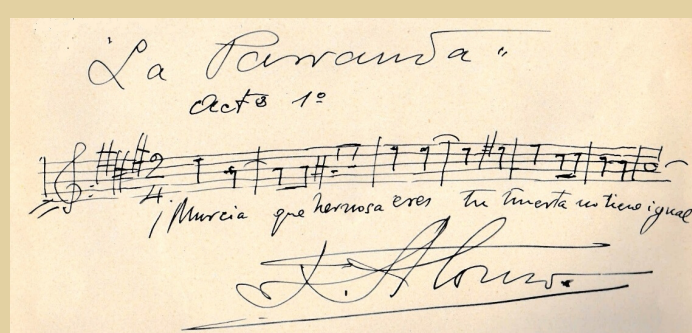 "La Parranda"
Acto 1º
2
4
¡Murcia que hermosa eres tu huerta no tiene igual
F. Alonso.